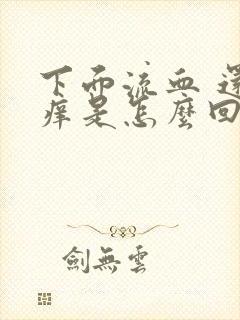 下面流血 還
痒是怎麼回
劍無雲